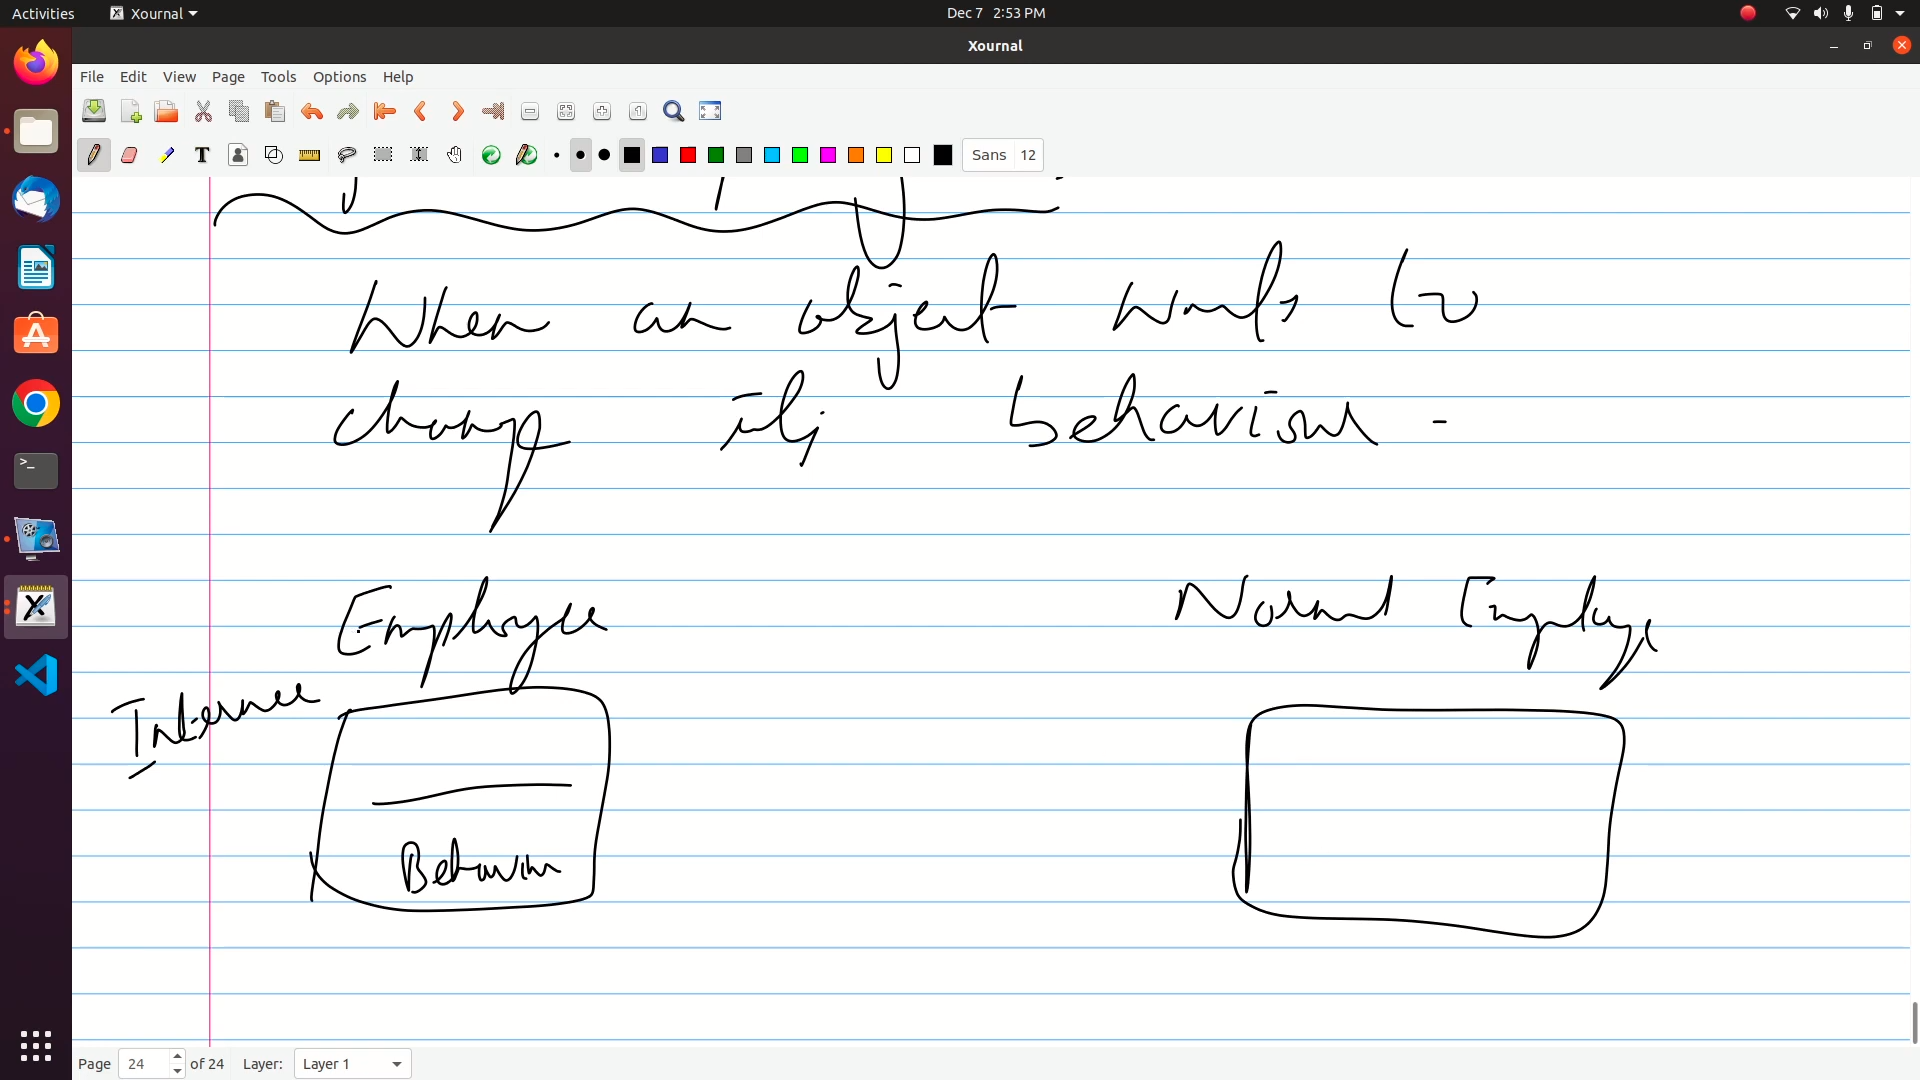 Activities Xournal Dec 7 2:53 PM
Xournal
File Edit View Page Tools Options Help
T Sans 12
When an object wants to
change its behaviour -
Employee Normal Employee
Behaviour
Page 24 of 24 Layer: Layer 1